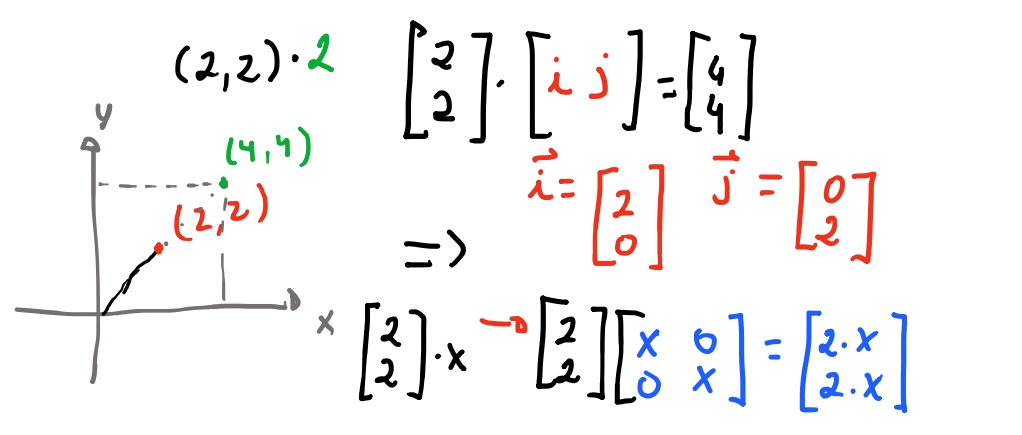 (2,2)·2
[2 2]·[i j]=[4 4]
y
(4,4)
i⃗=[2 0] j⃗=[0 2]
(2,2)
=>
x
[2 2]·x → [2 2][x 0 0 x]=[2·x 2·x]